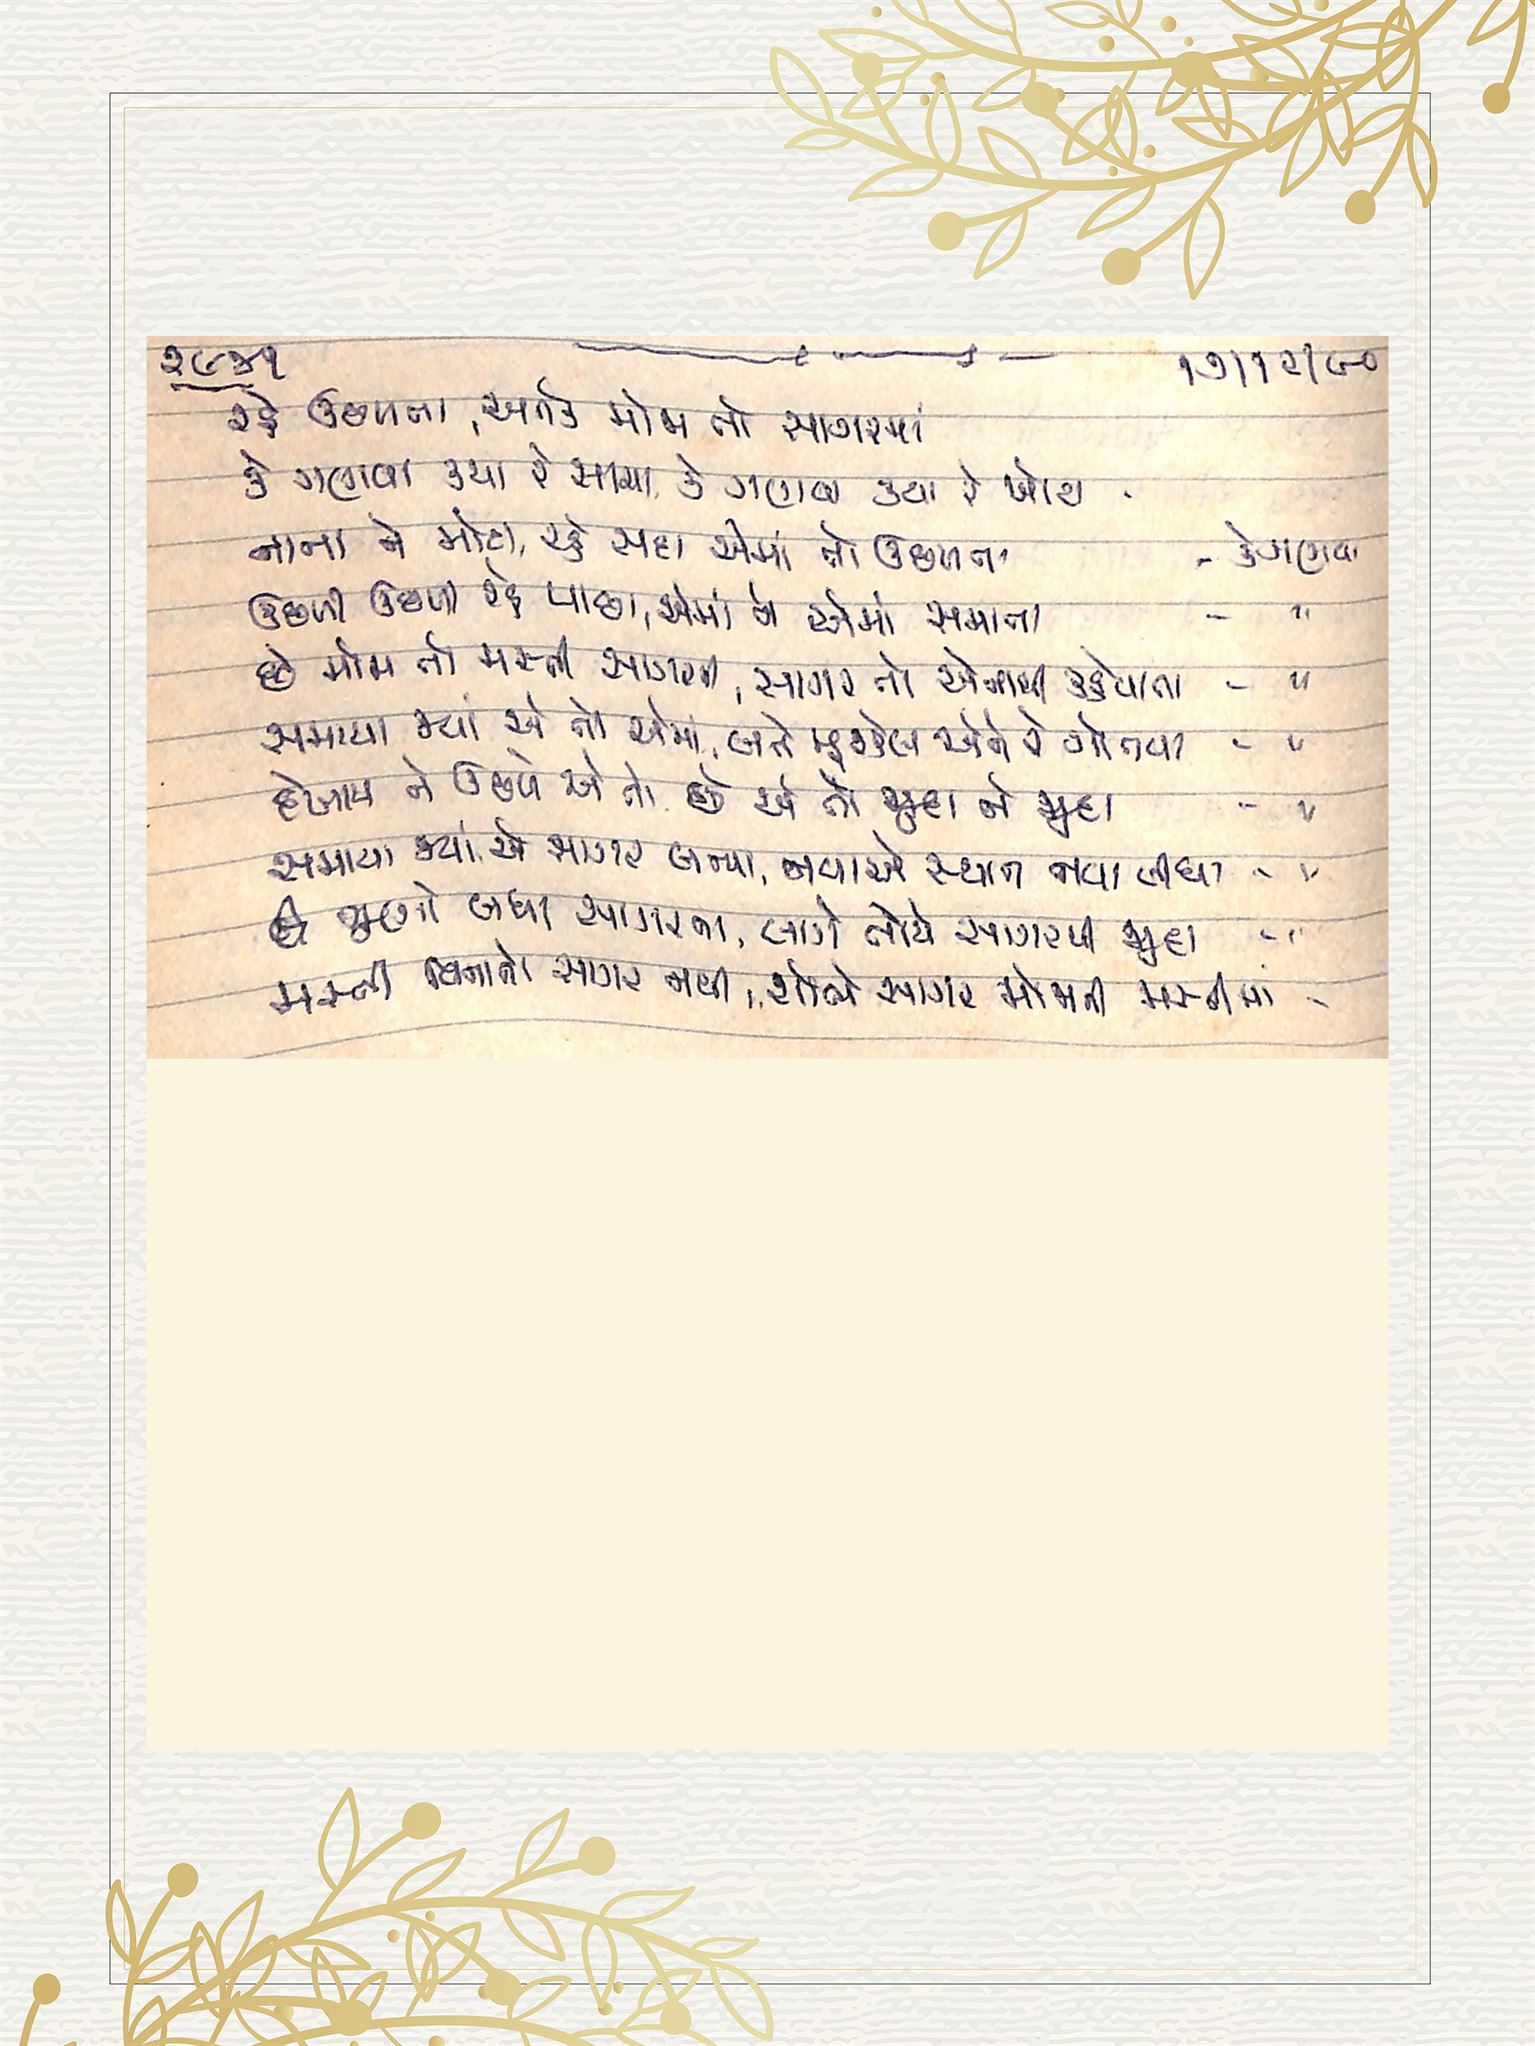 ૨૯૪૧ ૧૭/૧૨/૯૦
રહે ઉછળતા, અનેક મોજા તો સાગરમાં
કે ગણવા કયા રે સાચા, કે ગણવા કયા રે ખોટા -
નાના ને મોટા, રહે સદા એમાં તો ઉછળતા - કે ગણવા
ઉછળી ઉછળી રહે પાછા, એમાં ને એમાં સમાતા - "
છે મોજા તો મસ્તી સાગરની, સાગર તો એનાથી કહેવાતા - "
સમાયા જ્યાં એ તો એમાં, બને મુશ્કેલ એને રે ગોતવા - "
દેખાય ને ઉછળે એ તો, છે એ તો જુદા ને જુદા - "
સમાયા જ્યાં, એ સાગર બન્યા, નવાએ સ્થાન નવા લીધા - "
છે જુઓ બધા સાગરના, લાગે તોયે સાગરથી જુદા - "
મસ્તી વિનાનો સાગર નથી, શોભે સાગર મોજાની મસ્તીમાં -